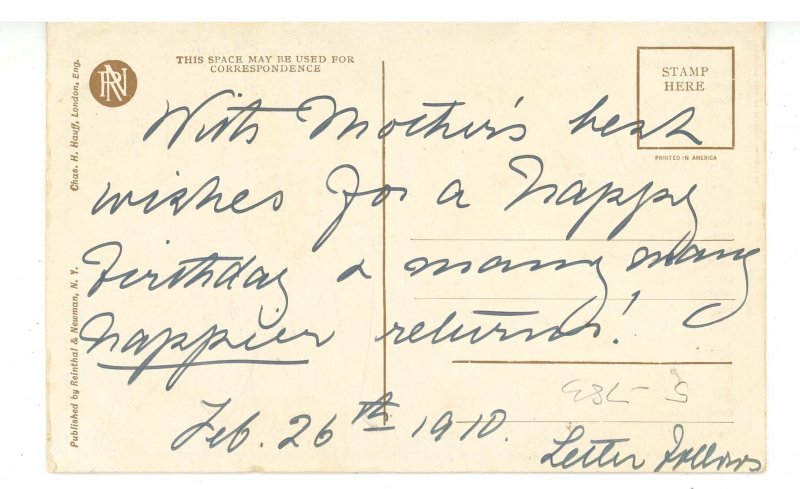 THIS SPACE MAY BE USED FOR
CORRESPONDENCE
STAMP
HERE
PRINTED IN AMERICA
Chas. H. Hauff, London, Eng.
Published by Reinthal & Newman, N. Y.
RN
With Mother's best
wishes for a happy
birthday & many many
happier returns!
Feb. 26th 1910.
Letter follows